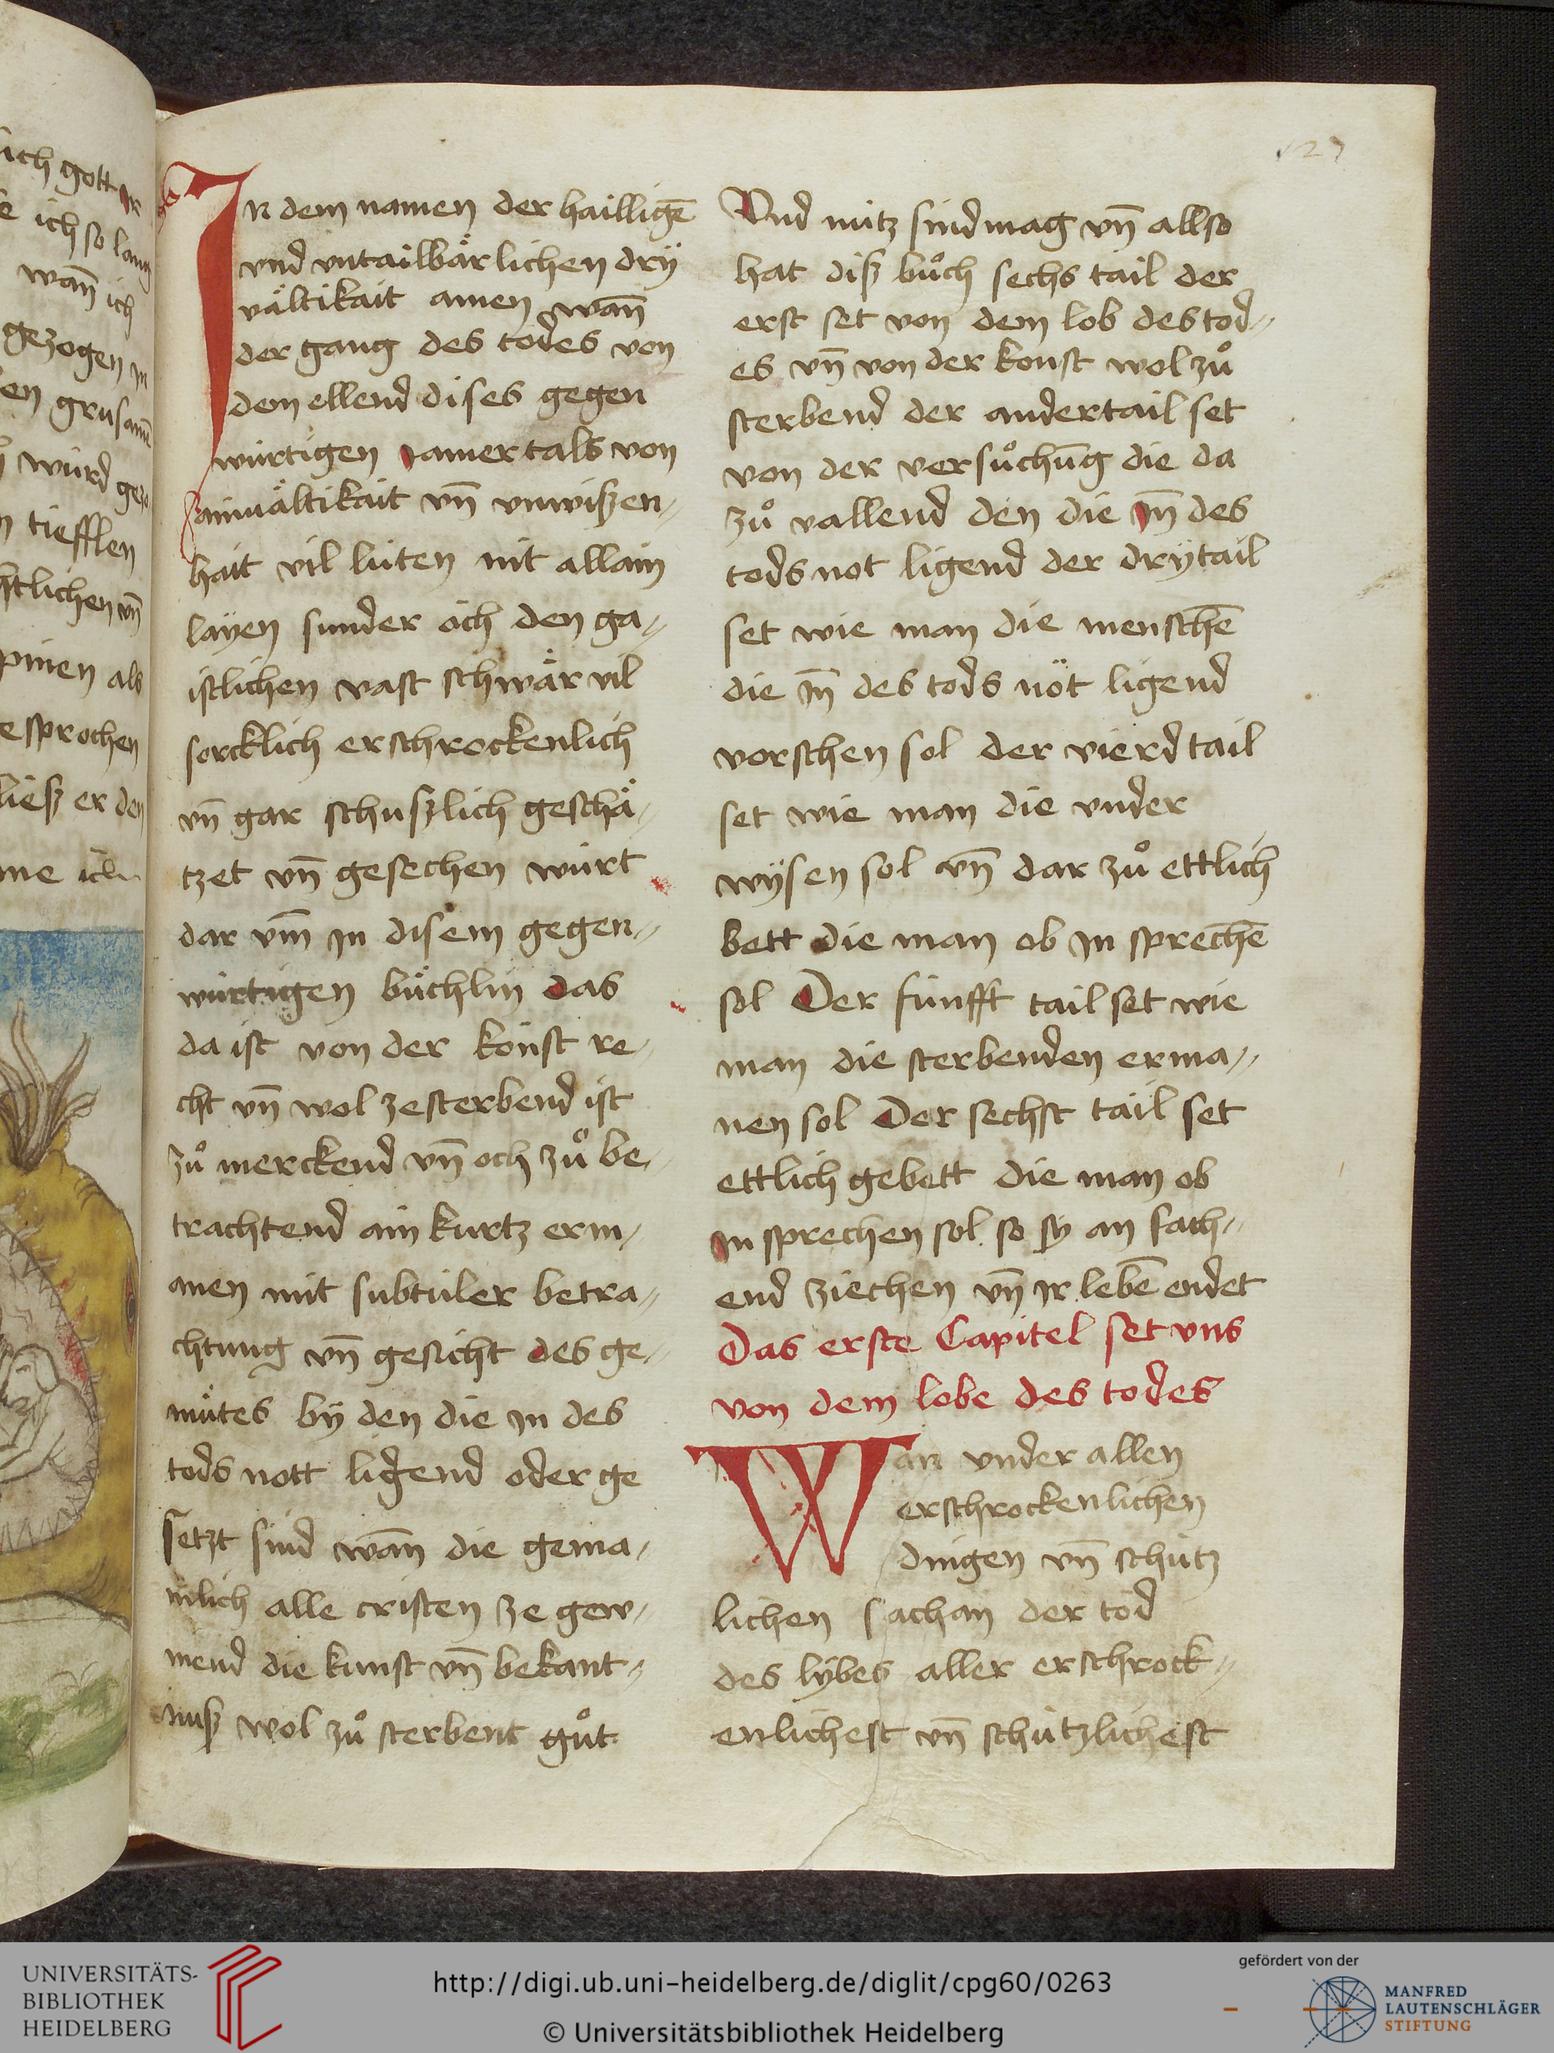 127
In dem namen der hailligē
vnd vntailbärlichen drÿ
vältikait amen wañ
der gang des todes von
dem ellend dises gegen
würtigen Jamertals von
ainuältikait vn̄ vnwißen〃
hait vil lüten nit allain
layen sunder och den ga〃
istlichen vast schwär vil
sorcklich erschrockenlich
vn̄ gar schuszlich geschä〃
tzet vn̄ gesechen würt
dar vm̄ In disem gegen〃
würtigen büchlin das
da ist von der konst re〃
cht vn̄ wol ze sterbend ist
zů merckend vn̄ och zů be〃
trachtend ain kurtz erm〃
anen mit subtiler betra〃
chtung vn̄ gesicht des ge〃
mütes bÿ den die In des
tods nott ligend oder ge
setzt sind wañ die gema〃
inlich alle cristen ze gew〃
inend die kunst vn̄ bekant〃
nuß wol zů sterbent gůt
Vnd nütz sind mag vn̄ allso
hat diß bůch sechs tail der
erst set von dem lob des tod〃
es vn̄ von der konst wol zů
sterbend der ander tail set
von der versůchūg die da
zů vallend den die Iñ des
tods not ligend der drÿ tail
set wie man die menschē
die Iñ des tods nöt ligend
vorschen sol der vierd tail
set wie man die vnder
wÿsen sol vn̄ dar zů ettlich
bett die man ob In sprechē
sol Der fünfft tail set wie
man die sterbenden erma〃
nen sol Der sechst tail set
ettlich gebett die man ob
In sprechen sol so sÿ an fach〃
end ziechen vn̄ Ir lebē endet
Das erste Capitel set vns
von dem lobe des todes
Wan vnder allen
erschrockenlichen
dingen vn̄ schütz
lichen sachan der tod
des lÿbes aller erschrock〃
enlichest vn̄ schützlichest
ich gott
ich so lang
wañ ich
gezogen In
würd
tiefflen
pinen als
gesprochen
ließ er den
UNIVERSITÄTS-
BIBLIOTHEK
HEIDELBERG
http://digi.ub.uni-heidelberg.de/diglit/cpg60/0263
© Universitätsbibliothek Heidelberg
gefördert von der
MANFRED
LAUTENSCHLÄGER
STIFTUNG